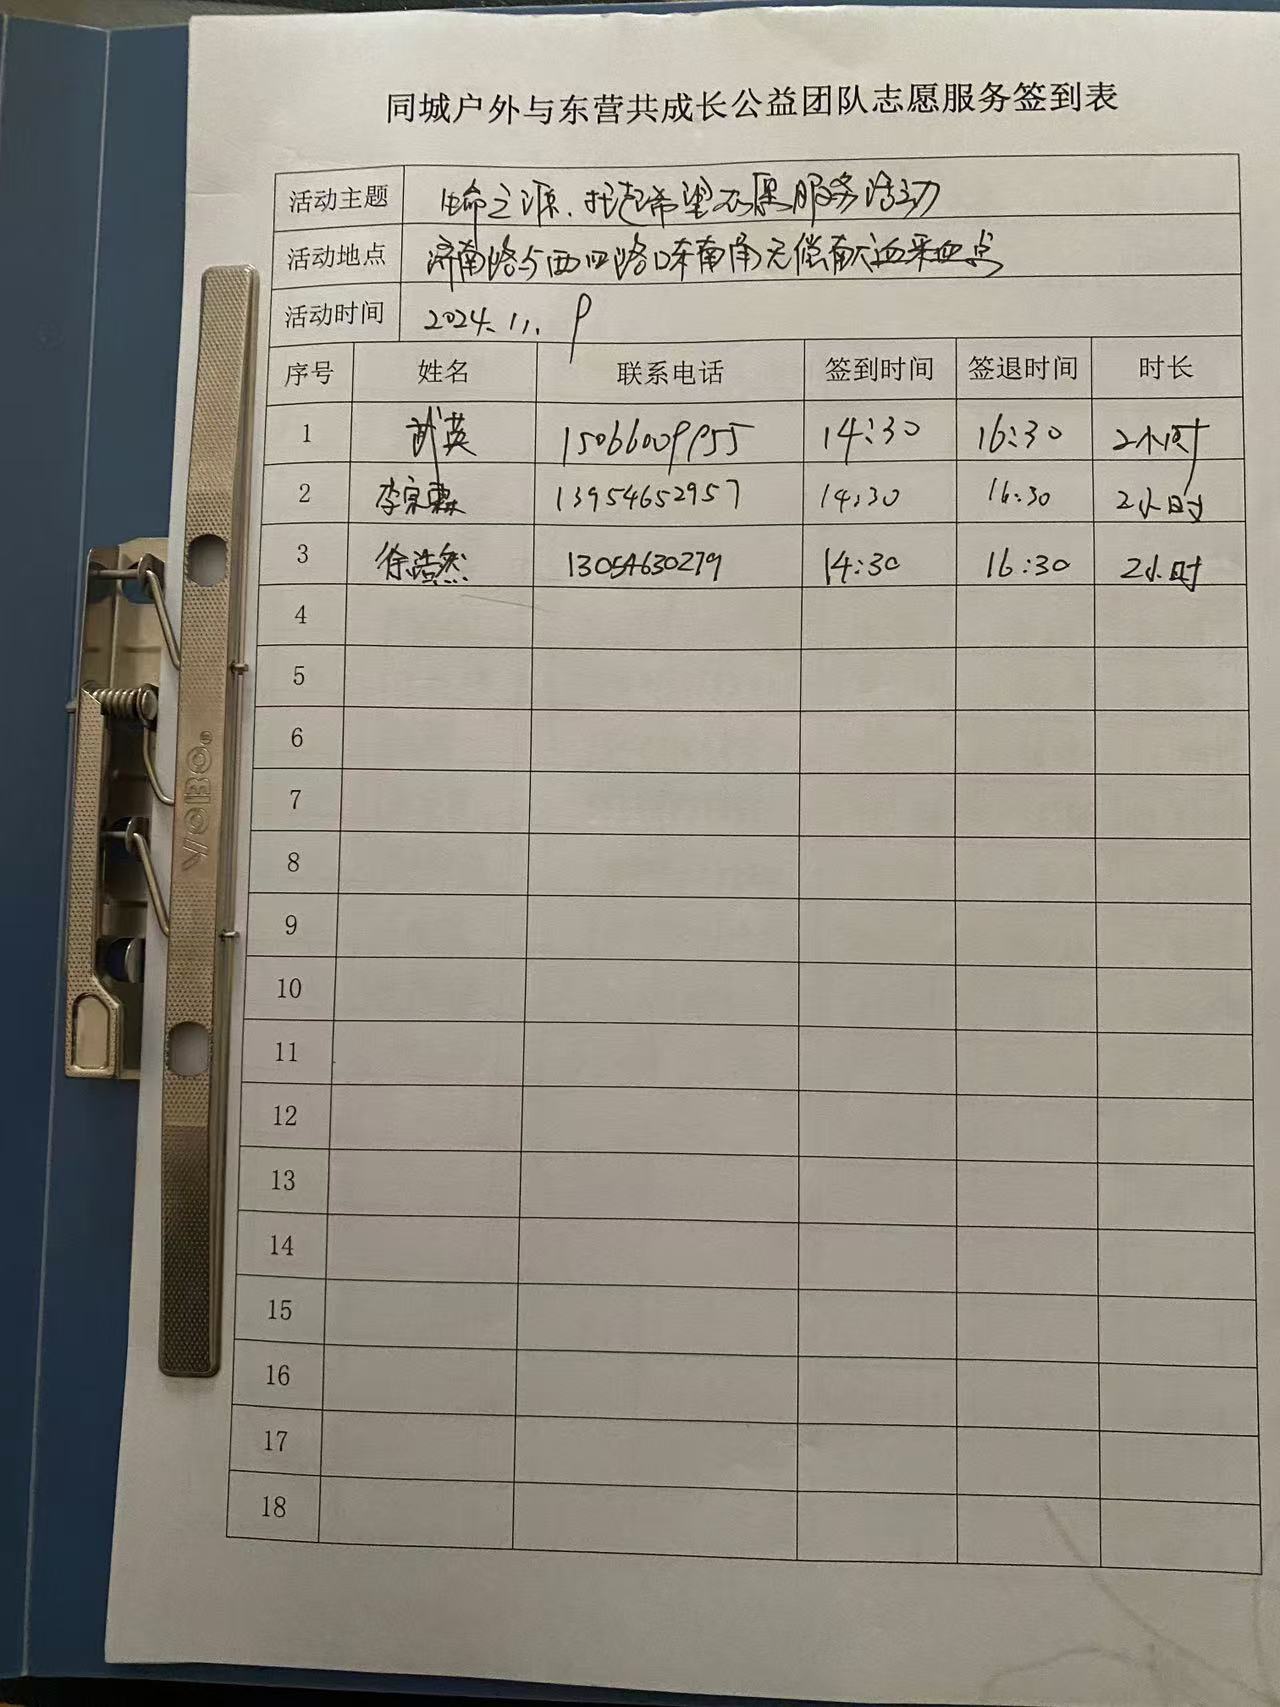 同城户外与东营共成长公益团队志愿服务签到表
活动主题 生命之源、托起希望志愿服务活动
活动地点 济南路与西四路口东南角无偿献血采血点
活动时间 2024.11.9
序号 姓名 联系电话 签到时间 签退时间 时长
1 武英 15066009955 14:30 16:30 2小时
2 李宗霖 13954652957 14:30 16:30 2小时
3 徐浩然 13054630279 14:30 16:30 2小时
4
5
6
7
8
9
10
11
12
13
14
15
16
17
18
YOBO®